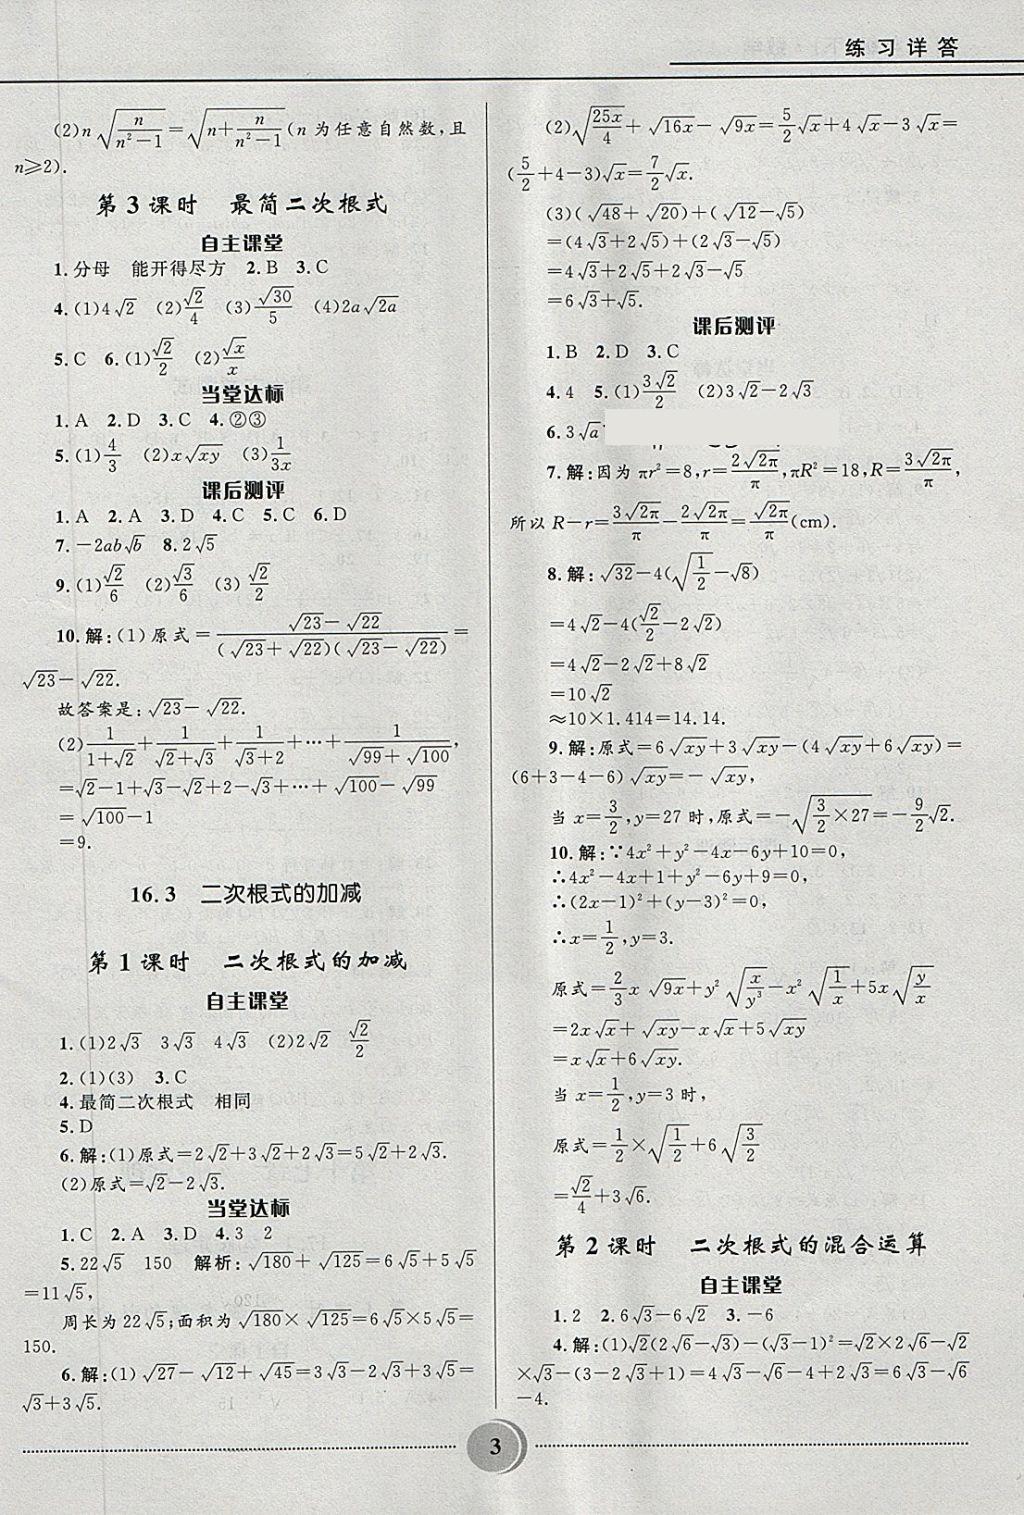 练习详答
(2)n√(n/(n²-1))=√(n+n/(n²-1))(n 为任意自然数,且
n≥2).
第 3 课时 最简二次根式
自主课堂
1.分母 能开得尽方 2.B 3.C
4.(1)4√2 (2)√2/4 (3)√30/5 (4)2a√(2a)
5.C 6.(1)√2/2 (2)√x/x
当堂达标
1.A 2.D 3.C 4.②③
5.(1)4/3 (2)x√(xy) (3)1/(3x)
课后测评
1.A 2.A 3.D 4.C 5.C 6.D
7.-2ab√b 8.2√5
9.(1)√2/6 (2)√3/6 (3)√2/2
10.解:(1)原式=(√23-√22)/((√23+√22)(√23-√22))=
√23-√22.
故答案是:√23-√22.
(2)1/(1+√2)+1/(√2+√3)+1/(√3+2)+…+1/(√99+√100),
=√2-1+√3-√2+2-√3+…+√100-√99
=√100-1
=9.
16.3 二次根式的加减
第 1 课时 二次根式的加减
自主课堂
1.(1)2√3 3√3 4√3 (2)2√2 √2/2
2.(1)(3) 3.C
4.最简二次根式 相同
5.D
6.解:(1)原式=2√2+3√2+2√3=5√2+2√3.
(2)原式=√2-2√3.
当堂达标
1.C 2.A 3.D 4.3 2
5.22√5 150 解析:√180+√125=6√5+5√5
=11√5,
周长为 22√5;面积为√180×√125=6√5×5√5=
150.
6.解:(1)√27-√12+√45=3√3-2√3+3√5=
√3+3√5.
(2)√(25x/4)+√(16x)-√(9x)=5/2√x+4√x-3√x=
(5/2+4-3)√x=7/2√x.
(3)(√48+√20)+(√12-√5)
=(4√3+2√5)+(2√3-√5)
=4√3+2√5+2√3-√5
=6√3+√5.
课后测评
1.B 2.D 3.C
4.4 5.(1)3√2/2 (2)3√2-2√3
6.3√a
7.解:因为 πr²=8,r=2√(2π)/π,πR²=18,R=3√(2π)/π,
所以 R-r=3√(2π)/π-2√(2π)/π=√(2π)/π(cm).
8.解:√32-4(√(1/2)-√8)
=4√2-4(√2/2-2√2)
=4√2-2√2+8√2
=10√2
≈10×1.414=14.14.
9.解:原式=6√(xy)+3√(xy)-(4√(xy)+6√(xy))=
(6+3-4-6)√(xy)=-√(xy),
当 x=3/2,y=27 时,原式=-√(3/2×27)=-9/2√2.
10.解:∵4x²+y²-4x-6y+10=0,
∴4x²-4x+1+y²-6y+9=0,
∴(2x-1)²+(y-3)²=0,
∴x=1/2,y=3.
原式=2/3x√(9x)+y²√(x/y³)-x²√(1/x)+5x√(y/x)
=2x√x+√(xy)-x√x+5√(xy)
=x√x+6√(xy).
当 x=1/2,y=3 时,
原式=1/2×√(1/2)+6√(3/2)
=√2/4+3√6.
第 2 课时 二次根式的混合运算
自主课堂
1.2 2.6√3-6√2 3.-6
4.解:(1)√2(2√6-√3)-(√3-1)²=√2×2√6-√2
×√3-(3-2√3+1)=4√3-√6-4+2√3=6√3-√6
-4.
3